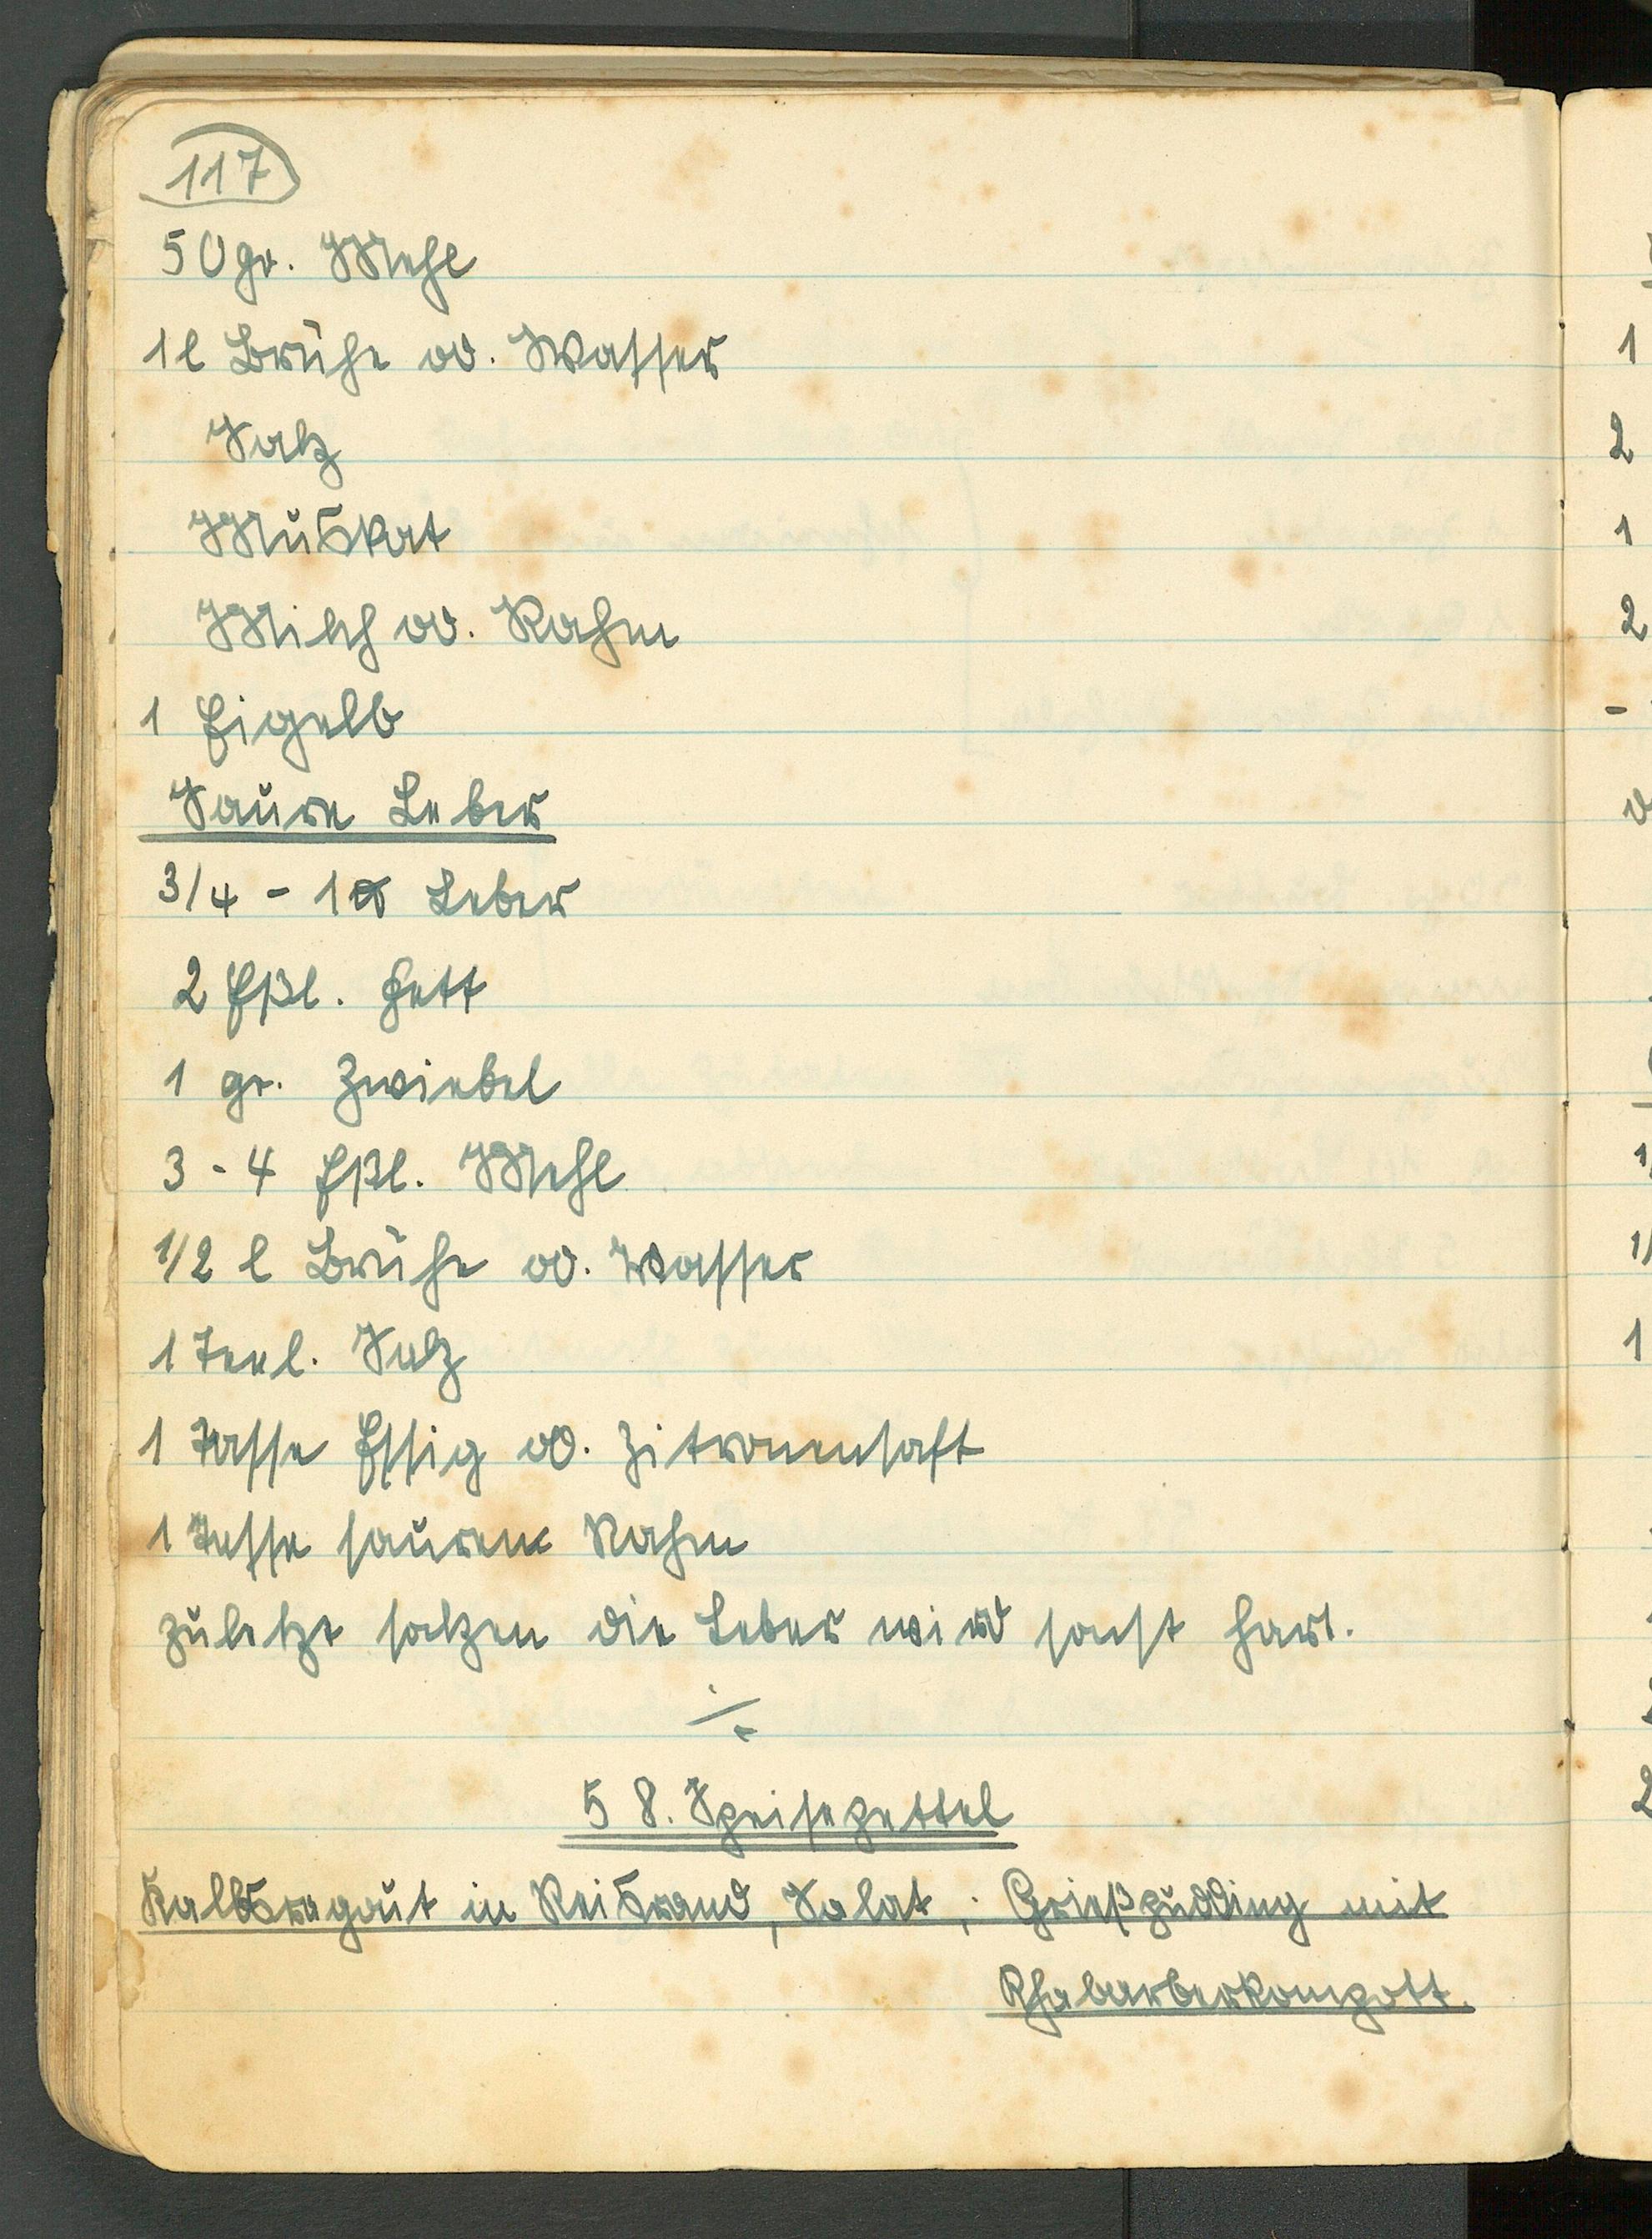 117
50 gr. Mehl
1 l Brühe od. Wasser
Salz
Muskat
Milch od. Rahm
1 Eigelb
Saure Leber
3/4 - 1 ℔ Leber
2 Eßl. Fett
1 gr. Zwiebel
3 - 4 Eßl. Mehl
1/2 l Brühe od. Wasser
1 Teel. Salz
1 Tasse Essig od. Zitronensaft
1 Tasse sauren Rahm
zuletzt salzen die Leber wird sonst hart.
58. Speisezettel
Kalbsragout in Reisrand, Salat, ; Grießpudding mit
Rhabarberkompott.